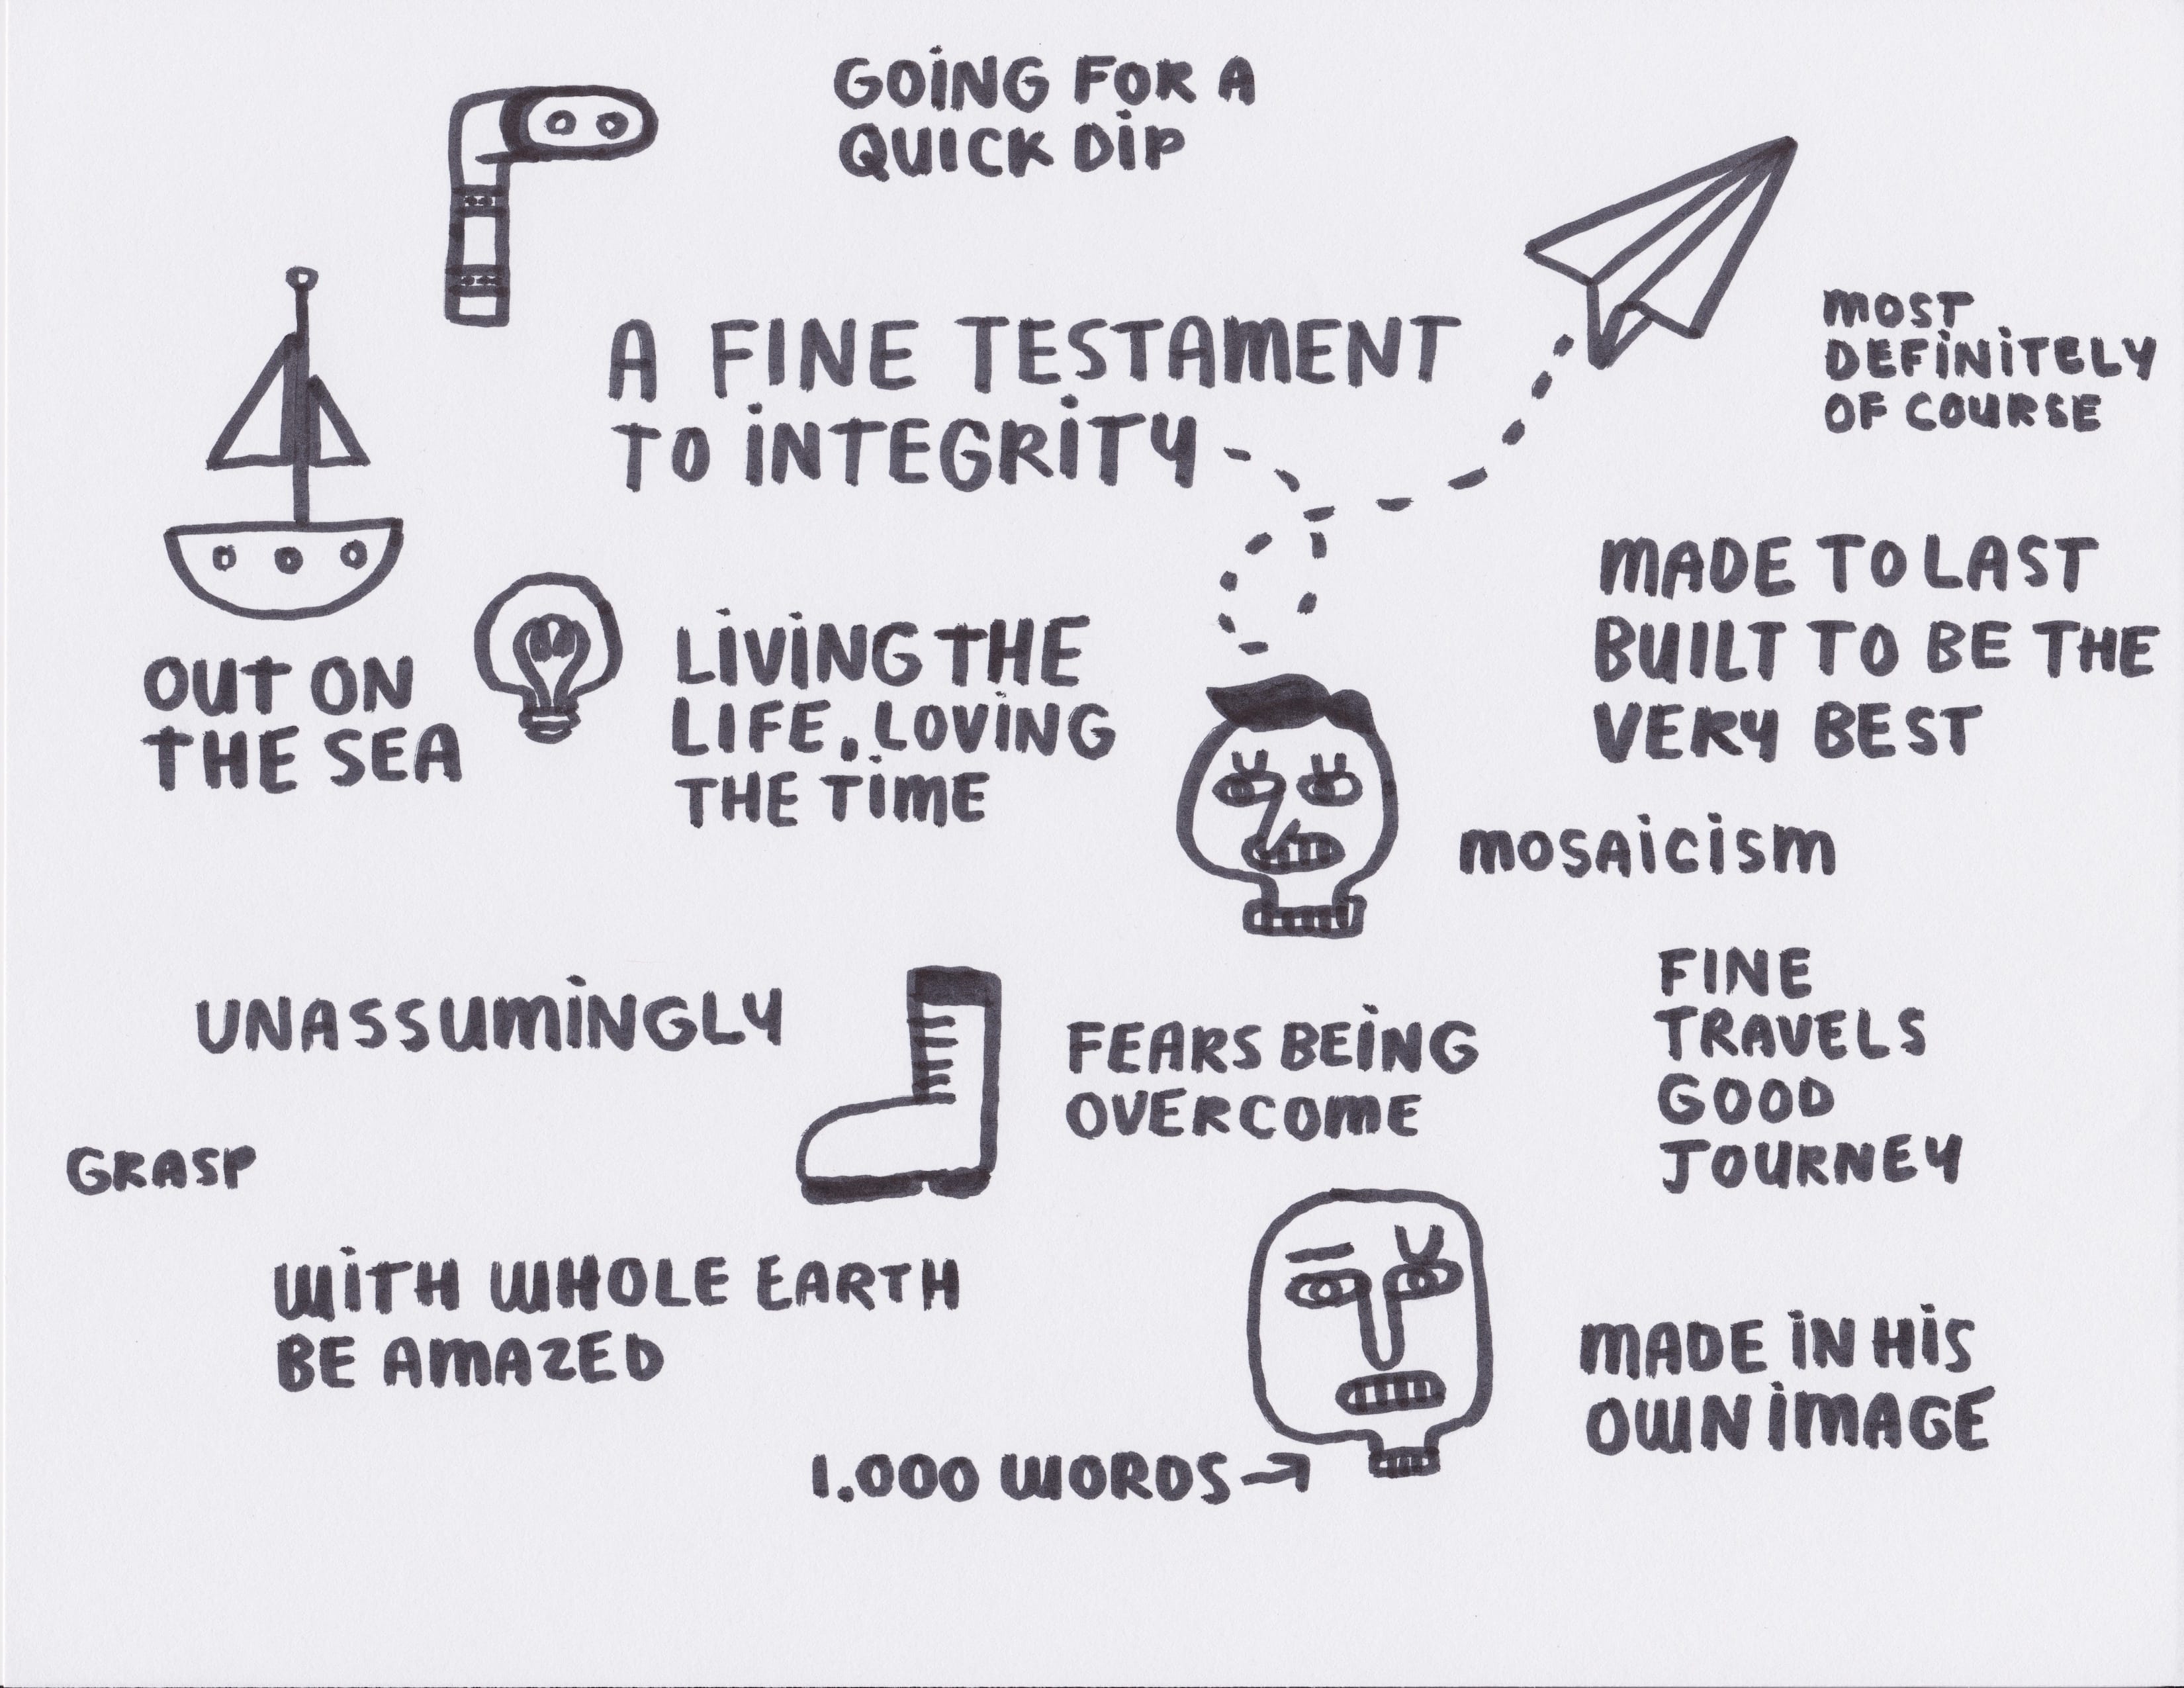 GOING FOR A
QUICK DIP
A FINE TESTAMENT
TO INTEGRITY
MOST
DEFINITELY
OF COURSE
OUT ON
THE SEA
LIVING THE
LIFE. LOVING
THE TIME
MADE TO LAST
BUILT TO BE THE
VERY BEST
MOSAICISM
UNASSUMINGLY
FEARS BEING
OVERCOME
FINE
TRAVELS
GOOD
JOURNEY
GRASP
WITH WHOLE EARTH
BE AMAZED
MADE IN HIS
OWN IMAGE
1.000 WORDS→